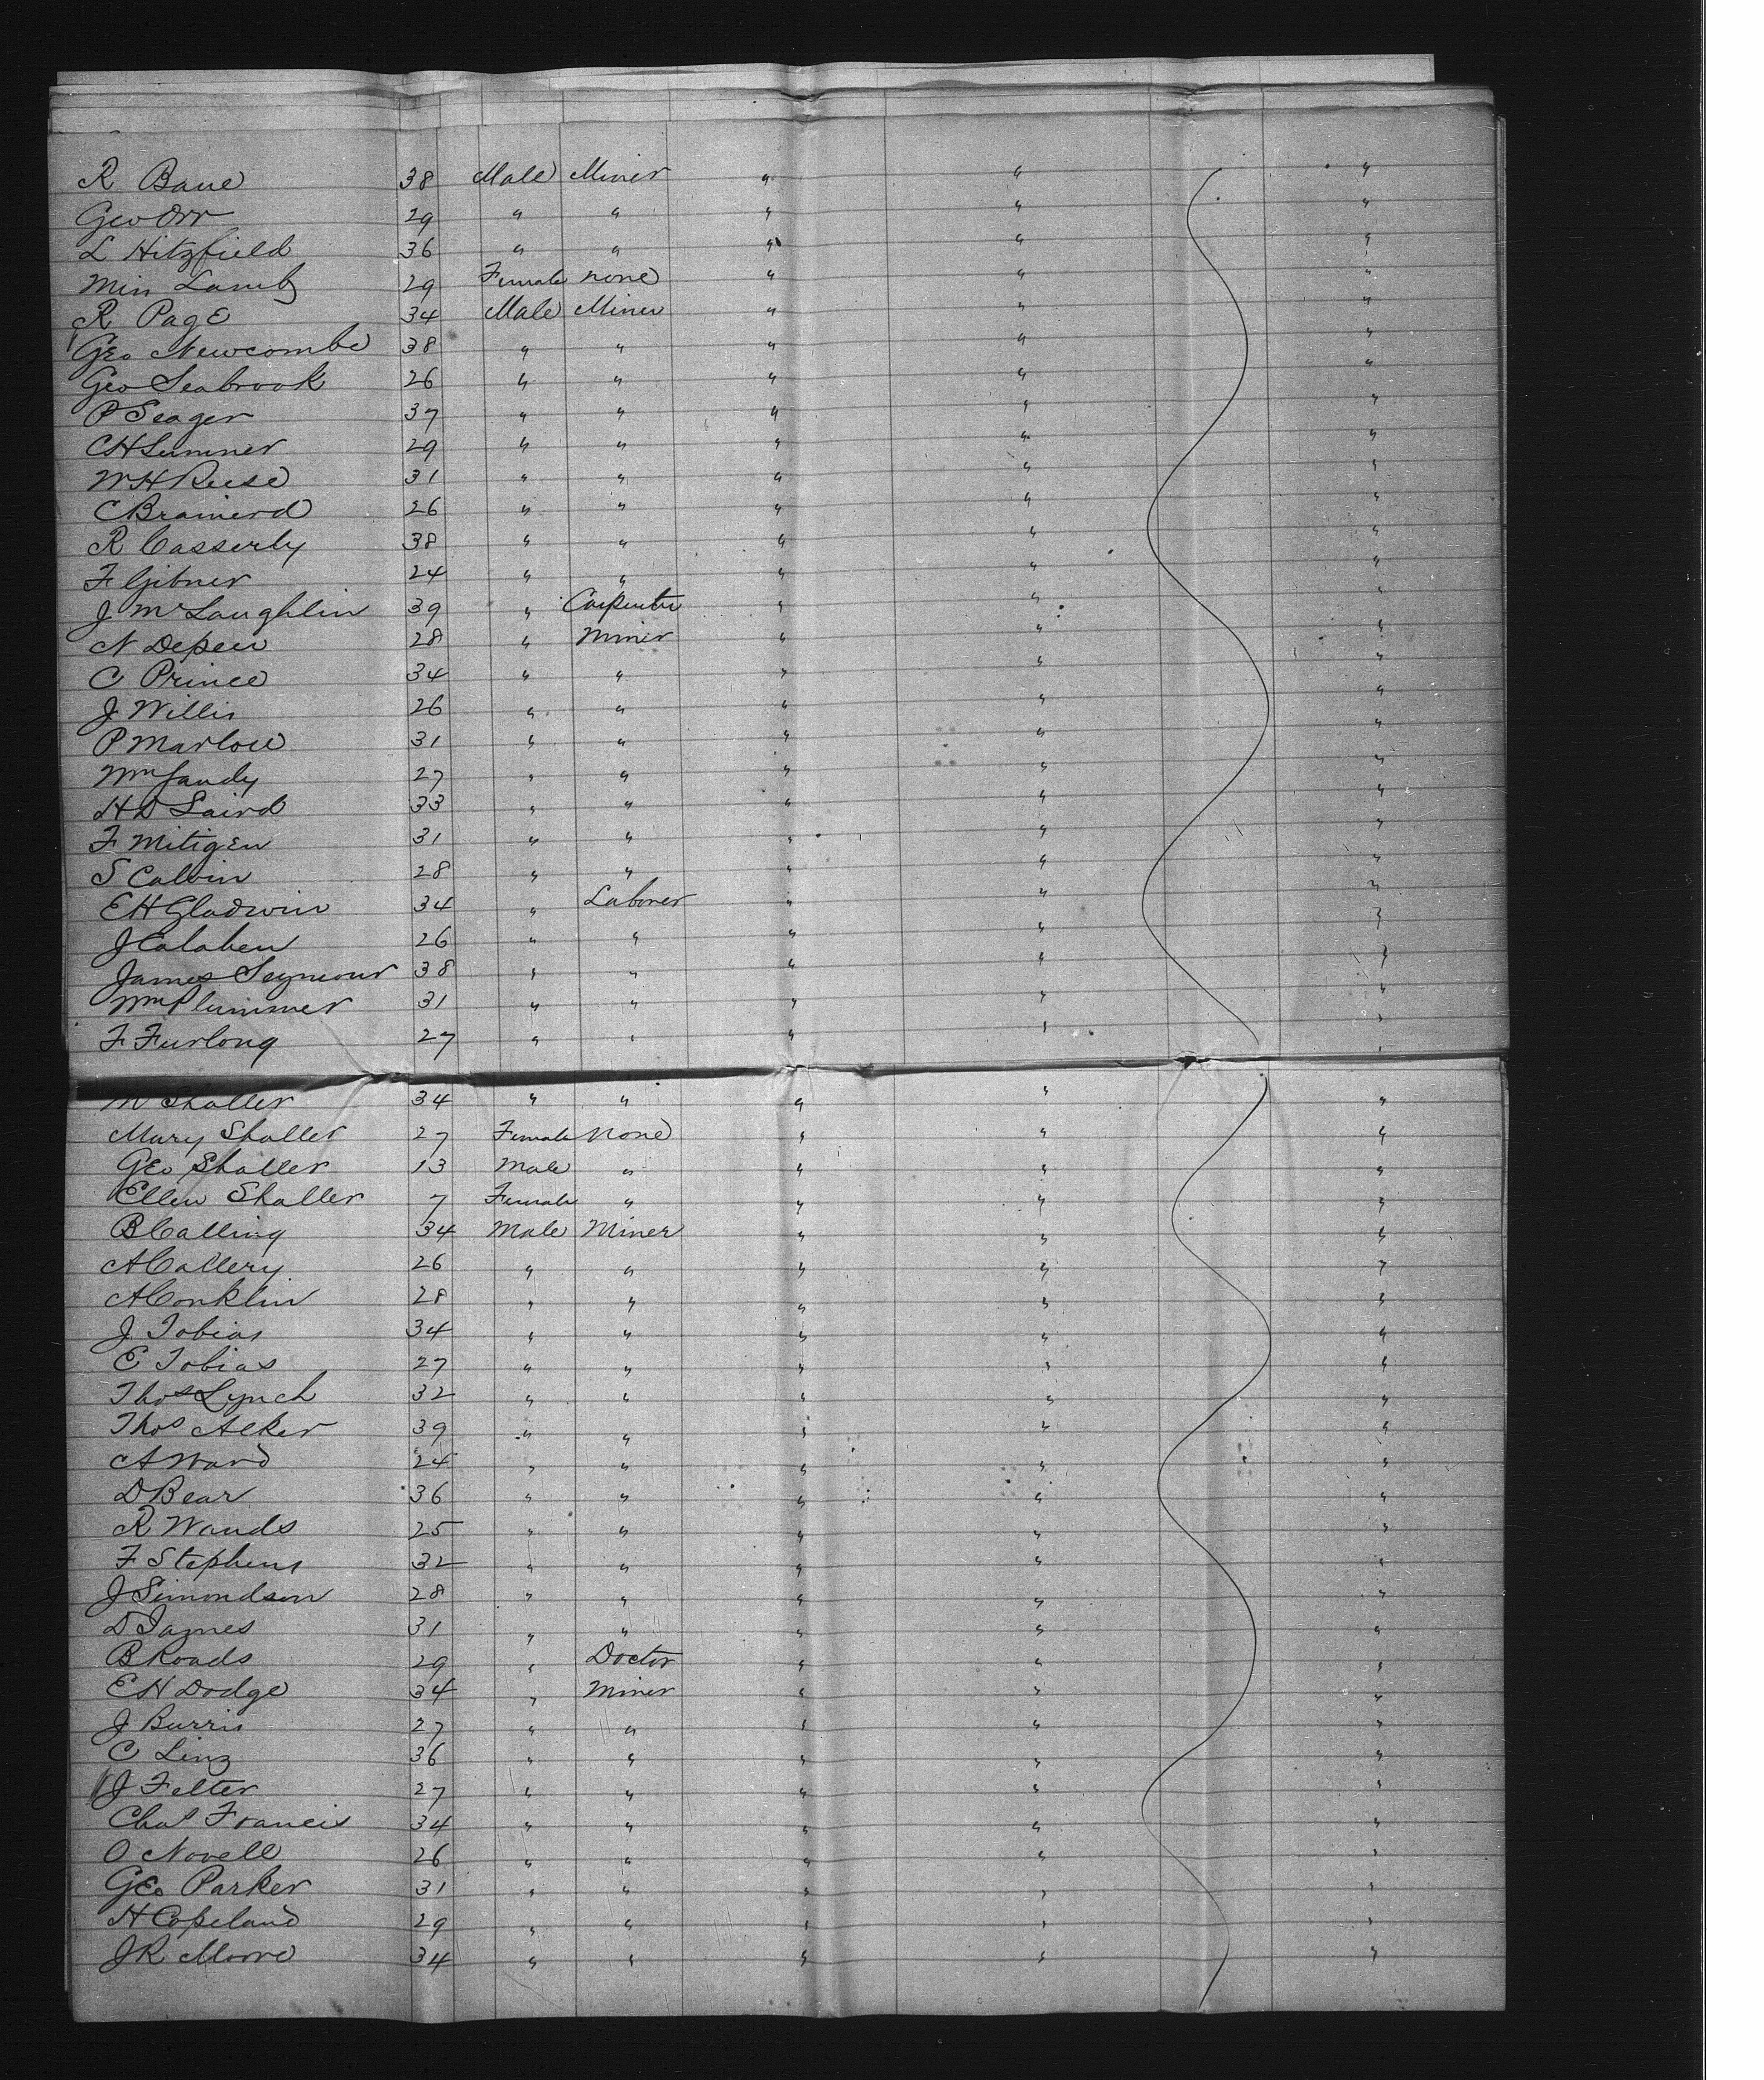 R Bane 38 Male Miner " " "
Geo Orr 29 " " " " "
L Hitzfield 36 " " " " "
Min Lamb 29 Female none " " "
R Page 34 Male Miner " " "
Geo Newcombe 38 " " " " "
Geo Seabrook 26 " " " " "
P Seager 37 " " " " "
C H Sumner 29 " " " " "
W H Reese 31 " " " " "
C Brainerd 26 " " " " "
R Casserly 38 " " " " "
F Gibner 24 " " " " "
J McLaughlin 39 " Carpenter " " "
N Depew 28 " Miner " " "
C Prince 34 " " " " "
J Willis 26 " " " " "
P Marlow 31 " " " " "
Wm Gandy 27 " " " " "
H D Laird 33 " " " " "
F Mitigen 31 " " " " "
S Calvin 28 " " " " "
E H Gladwin 34 " Laborer " " "
J Calahen 26 " " " " "
James Seymour 38 " " " " "
Wm Plummer 31 " " " " "
F Furlong 27 " " " " "
M Shaller 34 " " " " "
Mary Shaller 27 Female none " " "
Geo Shaller 13 Male " " " "
Ellen Shaller 7 Female " " " "
B Calling 34 Male Miner " " "
A Callery 26 " " " " "
A Conklin 28 " " " " "
J Tobias 34 " " " " "
E Tobias 27 " " " " "
Thos Lynch 32 " " " " "
Thos Alker 39 " " " " "
A Ward 24 " " " " "
D Bear 36 " " " " "
R Wands 25 " " " " "
F Stephens 32 " " " " "
J Simondson 28 " " " " "
D James 31 " " " " "
B Roads 29 " Doctor " " "
E H Dodge 34 " Miner " " "
J Burris 27 " " " " "
C Linz 36 " " " " "
J Felter 27 " " " " "
Chas Francis 34 " " " " "
O Novell 26 " " " " "
Geo Parker 31 " " " " "
H Copeland 29 " " " " "
J R Moore 34 " " " " "